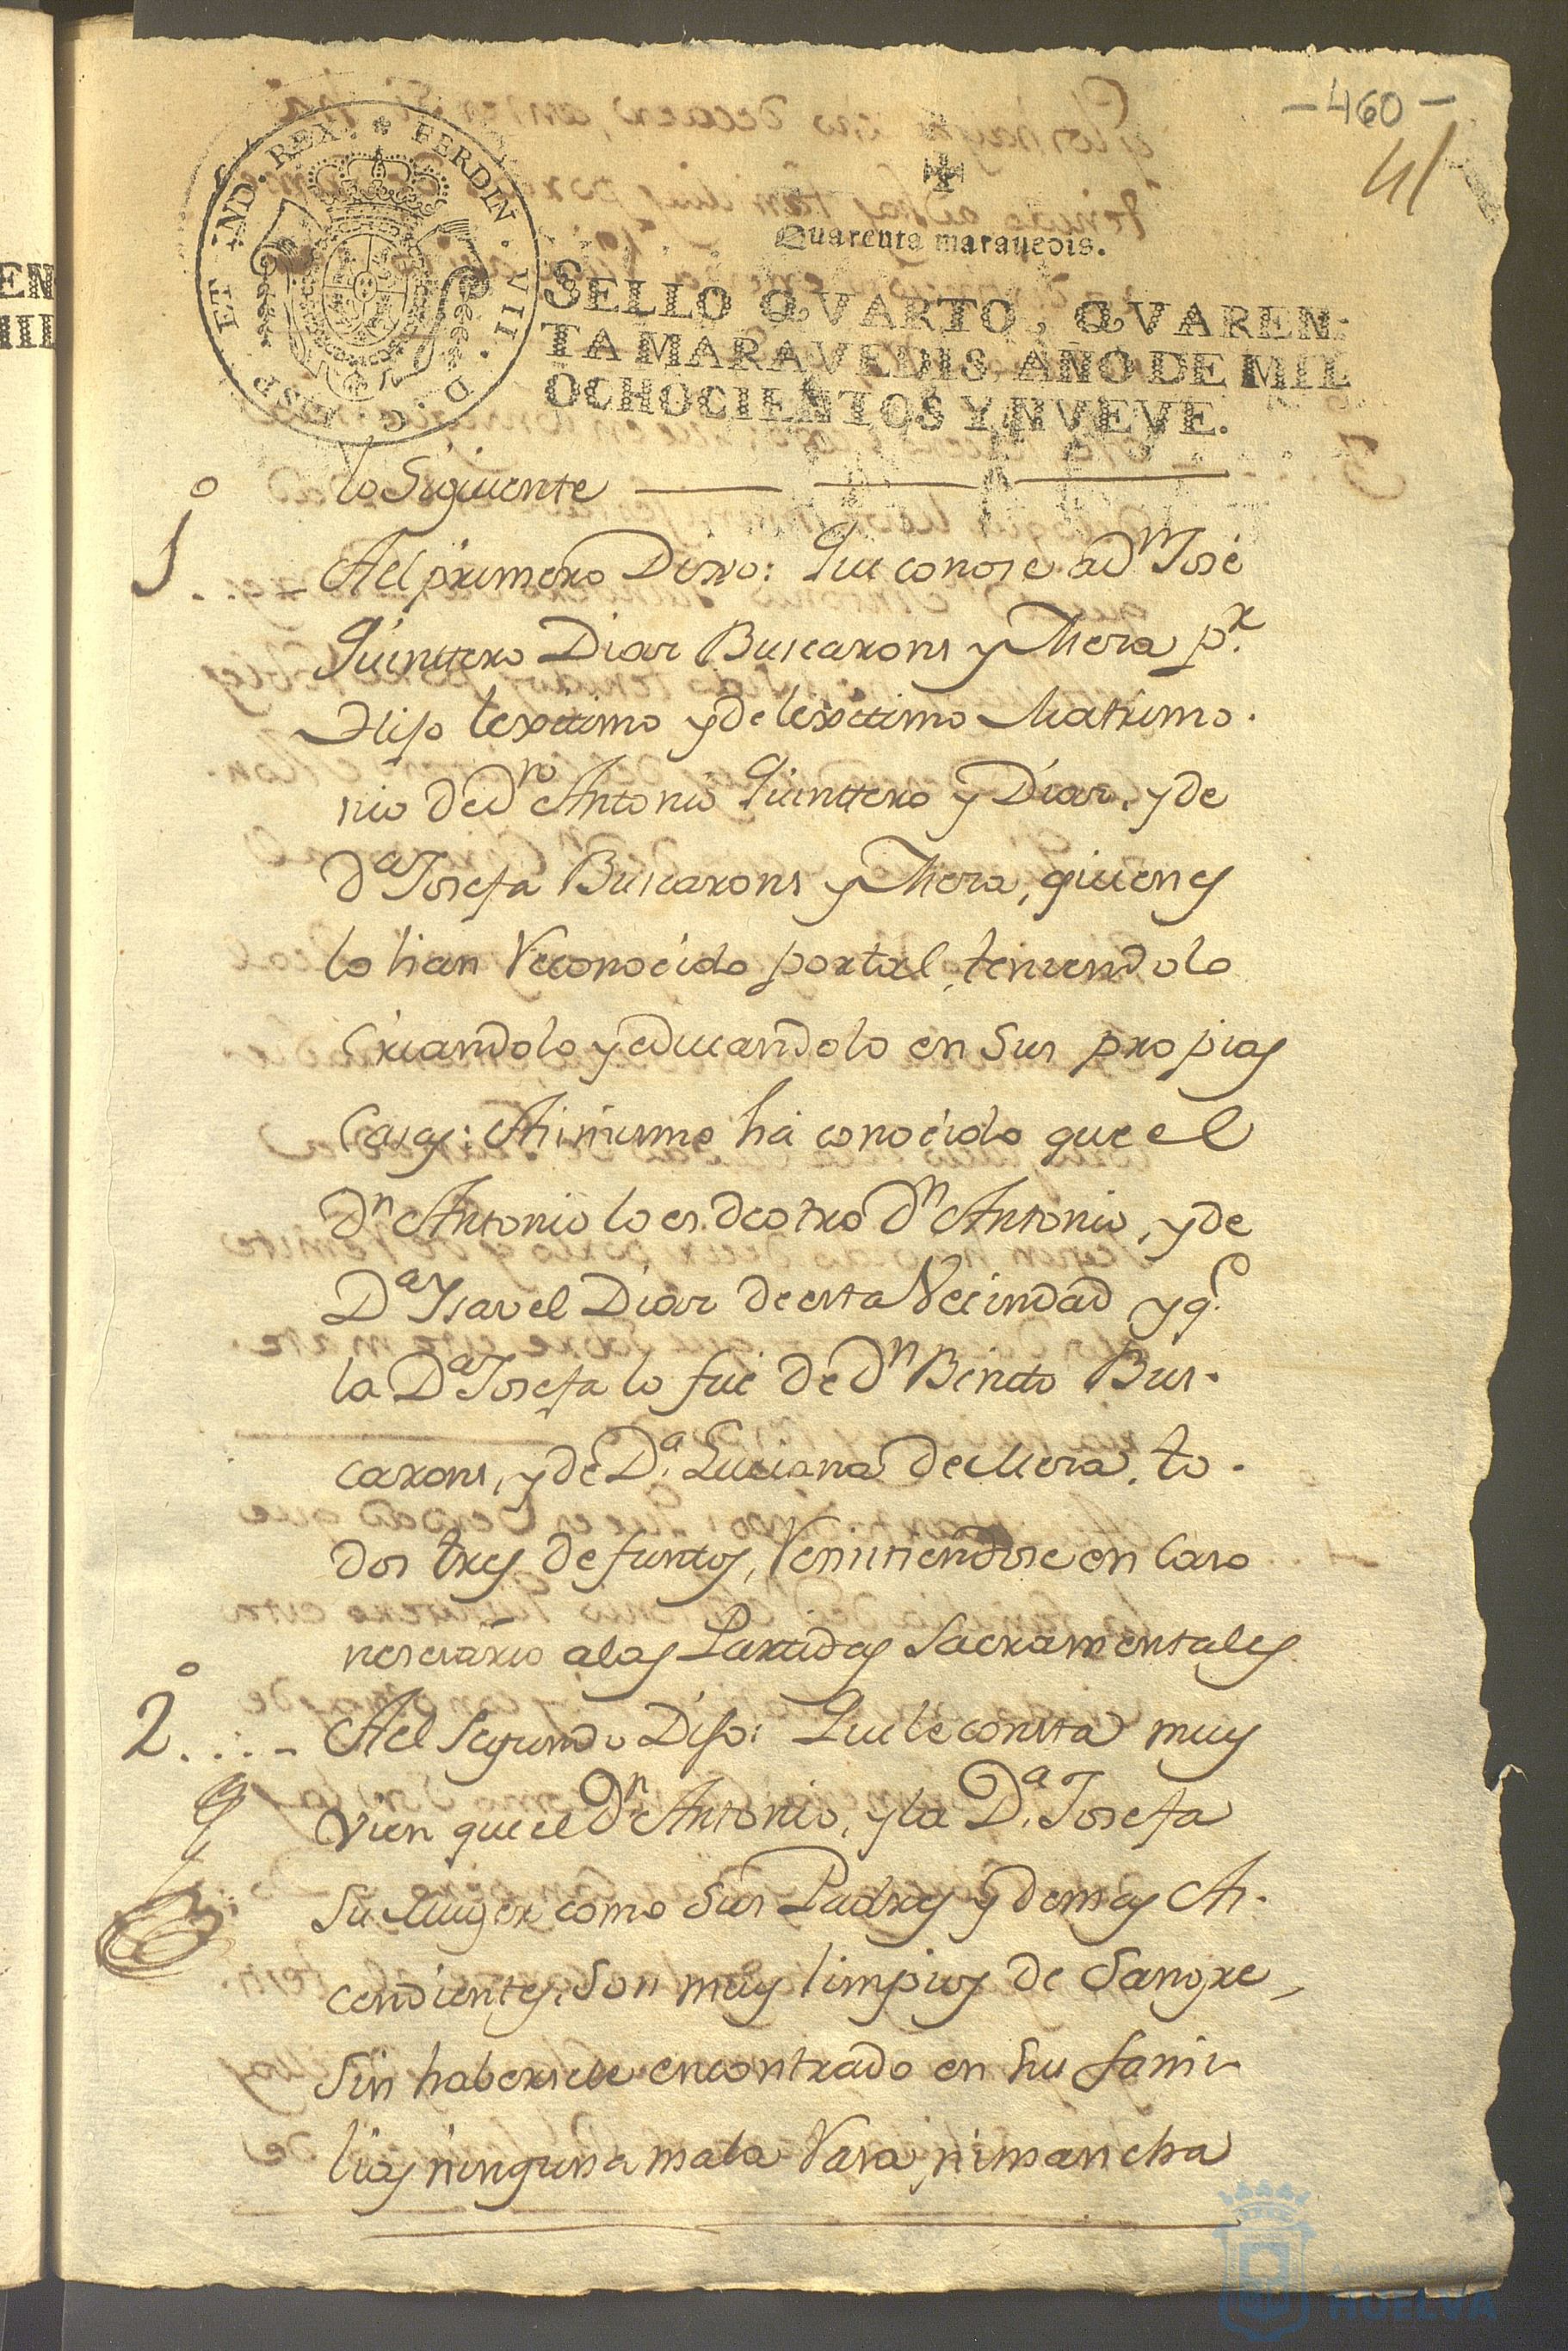 -460-
41
Quarenta maravedis.
SELLO QVARTO, QVAREN-
TA MARAVEDIS, AÑO DE MIL
OCHOCIENTOS Y NVEVE.
FERDIN · VII · D · G · HISP · ET · IND · REX ·
lo Siguiente
1º
Al primero Dixo: Que conose a Dn José
Quinttero Diaz Buscarons y Mera pr.
Hijo lexitimo y de lexitimo Matrimo-
nio de Dn Antonio Quinttero y Diaz, y de
Da Josefa Buscarons y Mera, quienes
lo han Reconocido por tal, teniendolo
Criandolo y educandolo en Sus propias
Casas: Asimismo ha conocido que el
Dn Antonio lo es de otro Dn Antonio, y de
Da Isavel Diaz de esta Vecindad y qe.
la Da Josefa lo fue de Dn Benito Bus-
carons, y de Da. Luciana de Mera, to-
dos tres defuntos, Remitiendose en Caso
nesesario a las Partidas Sacramentales
2º
Al Segundo Dijo: Que le consta muy
Vien que el Dn Antonio, y la Da. Josefa
Su Muger como Sus Padres y demas As-
cendientes, Son muy limpios de Sangre,
Sin habersele encontrado en Su fami-
lias ninguna mala Rasa, ni mancha
Ayuntamiento de
HUELVA